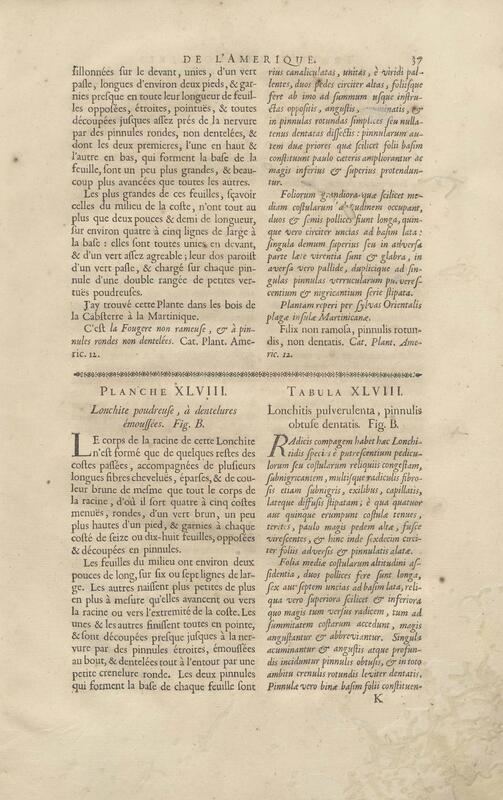 DE L'AMERIQUE. 37
sillonnées sur le devant, unies, d'un vert
pasle, longues d'environ deux pieds, & gar-
nies presque en toute leur longueur de feuil-
les opposées, étroites, pointuës, & toutes
découpées jusques assez prés de la nervure
par des pinnules rondes, non dentelées, &
dont les deux premieres, l'une en haut &
l'autre en bas, qui forment la base de la
feuille, sont un peu plus grandes, & beau-
coup plus avancées que toutes les autres.
Les plus grandes de ces feuilles, sçavoir
celles du milieu de la coste, n'ont tout au
plus que deux pouces & demi de longueur,
sur environ quatre à cinq lignes de large à
la base : elles sont toutes unies en devant,
& d'un vert assez agreable; leur dos paroist
d'un vert pasle, & chargé sur chaque pin-
nule d'une double rangée de petites ver-
tuës poudreuses.
J'ay trouvé cette Plante dans les bois de
la Cabsterre à la Martinique.
C'est la Fougere non rameuse, & à pin-
nules rondes non dentelées. Cat. Plant. Ame-
ric. 12.
rius canaliculatas, unitas, è viridi pal-
lentes, duos pedes circiter altas, foliisque
fere ab imo ad summum usque instru-
ctas oppositis, angustis, &
in pinnulas rotundas simplices seu nulla-
tenus dentatas dissectis : pinnularum au-
tem duæ priores quæ scilicet folii basim
constituunt paulo cæteris ampliorantur ac
magis inferius & superius protendun-
tur.
Foliorum grandiora quæ scilicet me-
diam costularum occupant,
duos & semis pollices sunt longa, quin-
que vero circiter uncias ad basim lata :
singula demum superius seu in adversa
parte læte virentia sunt & glabra, in
aversa vero pallide, duplicique ad sin-
gulas pinnulas verrucularum pulveres-
centium & nigricantium serie stipata.
Plantam reperi per sylvas Orientalis
plagæ insulæ Martinicanæ.
Filix non ramosa, pinnulis rotun-
dis, non dentatis. Cat. Plant. Ame-
ric. 12.
PLANCHE XLVIII.
Lonchite poudreuse, à dentelures
émoussées. Fig. B.
LE corps de la racine de cette Lonchite
n'est formé que de quelques restes des
costes passées, accompagnées de plusieurs
longues fibres chevelues, éparses, & de cou-
leur brune de mesme que tout le corps de
la racine, d'où il sort quatre à cinq costes
menuës, rondes, d'un vert brun, un peu
plus hautes d'un pied, & garnies à chaque
costé de seize ou dix-huit feuilles, opposées
& découpées en pinnules.
Les feuilles du milieu ont environ deux
pouces de long, sur six ou sept lignes de lar-
ge. Les autres naissent plus petites de plus
en plus à mesure qu'elles avancent ou vers
la racine ou vers l'extremité de la coste. Les
unes & les autres finissent toutes en pointe,
& sont découpées presque jusques à la ner-
vure par des pinnules étroites, émoussées
au bout, & dentelées tout à l'entour par une
petite crenelure ronde. Les deux pinnules
qui forment la base de chaque feuille sont
TABULA XLVIII.
Lonchitis pulverulenta, pinnulis
obtuse dentatis. Fig. B.
RAdicis compagem habet hæc Lonchi-
tidis speci : è putrescentium pedicu-
lorum seu costularum reliquiis congestam,
subnigricantem, multisque radiculis fibro-
sis etiam subnigris, exilibus, capillatis,
lateque diffusis stipatam ; è qua quatuor
aut quinque erumpunt costulæ tenues,
teretes, paulo magis pedem altæ, fusce
virescentes, & hinc inde sexdecim circi-
ter foliis adversis & pinnulatis alatæ.
Folia mediæ costularum altitudini as-
sidentia, duos pollices fere sunt longa,
sex aut septem uncias ad basim lata, reli-
qua vero superiora scilicet & inferiora
quo magis tum versus radicem, tum ad
summitatem costarum accedunt, magis
angustantur & abbreviantur. Singula
acuminantur & angustis atque profun-
dis inciduntur pinnulis obtusis, & in toto
ambitu crenulis rotundis leviter dentatis.
Pinnulæ vero binæ basim folii constituen-
K